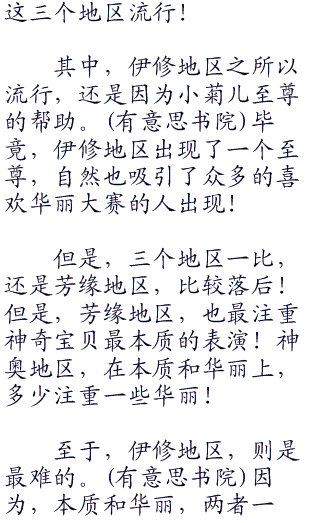 这三个地区流行！
其中，伊修地区之所以
流行，还是因为小菊儿至尊
的帮助。(有意思书院)毕
竟，伊修地区出现了一个至
尊，自然也吸引了众多的喜
欢华丽大赛的人出现！
但是，三个地区一比，
还是芳缘地区，比较落后！
但是，芳缘地区，也最注重
神奇宝贝最本质的表演！神
奥地区，在本质和华丽上，
多少注重一些华丽！
至于，伊修地区，则是
最难的。(有意思书院)因
为，本质和华丽，两者一